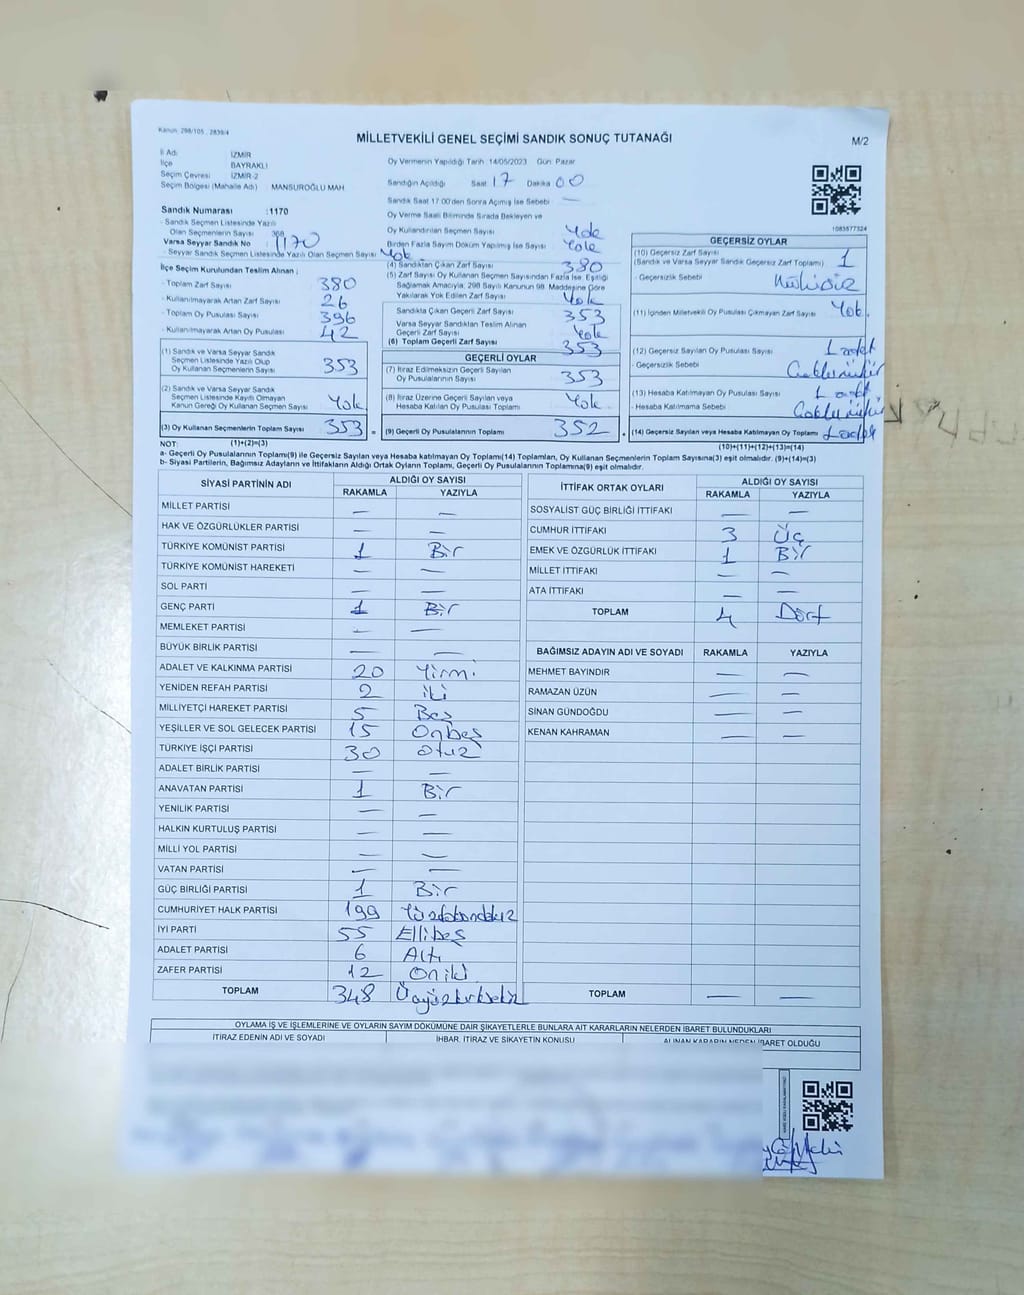 Kanun: 298/105 , 2839/4
MİLLETVEKİLİ GENEL SEÇİMİ SANDIK SONUÇ TUTANAĞI
M/2
İl Adı : İZMİR
İlçe : BAYRAKLI
Seçim Çevresi : İZMİR-2
Seçim Bölgesi (Mahalle Adı) : MANSUROĞLU MAH.
Sandık Numarası :1170
- Sandık Seçmen Listesinde Yazılı
Olan Seçmenlerin Sayısı : 368
Varsa Seyyar Sandık No : 1170
- Seyyar Sandık Seçmen Listesinde Yazılı Olan Seçmen Sayısı : Yok
İlçe Seçim Kurulundan Teslim Alınan ;
- Toplam Zarf Sayısı : 380
- Kullanılmayarak Artan Zarf Sayısı : 26
- Toplam Oy Pusulası Sayısı : 396
- Kullanılmayarak Artan Oy Pusulası : 42
(1) Sandık ve Varsa Seyyar Sandık
Seçmen Listesinde Yazılı Olup
Oy Kullanan Seçmenlerin Sayısı 353
(2) Sandık ve Varsa Seyyar Sandık
Seçmen Listesinde Kayıtlı Olmayan
Kanun Gereği Oy Kullanan Seçmen Sayısı Yok
(3) Oy Kullanan Seçmenlerin Toplam Sayısı 353 =
Oy Vermenin Yapıldığı Tarih :14/05/2023 Gün: Pazar
Sandığın Açıldığı Saat 17 Dakika 00
Sandık Saat 17:00'den Sonra Açılmış İse Sebebi —
Oy Verme Saati Bitiminde Sırada Bekleyen ve
Oy Kullandırılan Seçmen Sayısı Yok
Birden Fazla Sayım Döküm Yapılmış İse Sayısı Yok
(4) Sandıktan Çıkan Zarf Sayısı 380
(5) Zarf Sayısı Oy Kullanan Seçmen Sayısından Fazla İse, Eşitliği
Sağlamak Amacıyla, 298 Sayılı Kanunun 98. Maddesine Göre
Yakılarak Yok Edilen Zarf Sayısı Yok
Sandıkta Çıkan Geçerli Zarf Sayısı 353
Varsa Seyyar Sandıktan Teslim Alınan
Geçerli Zarf Sayısı Yok
(6) Toplam Geçerli Zarf Sayısı 353
GEÇERLİ OYLAR
(7) İtiraz Edilmeksizin Geçerli Sayılan
Oy Pusulalarının Sayısı 353
(8) İtiraz Üzerine Geçerli Sayılan veya
Hesaba Katılan Oy Pusulası Toplamı Yok
(9) Geçerli Oy Pusulalarının Toplamı 352 +
1083577324
GEÇERSİZ OYLAR
(10) Geçersiz Zarf Sayısı
(Sandık ve Varsa Seyyar Sandık Geçersiz Zarf Toplamı) 1
- Geçersizlik Sebebi
(11) İçinden Milletvekili Oy Pusulası Çıkmayan Zarf Sayısı Yok.
(12) Geçersiz Sayılan Oy Pusulası Sayısı 1 adet
- Geçersizlik Sebebi
(13) Hesaba Katılmayan Oy Pusulası Sayısı 1 adet
- Hesaba Katılmama Sebebi
(14) Geçersiz Sayılan veya Hesaba Katılmayan Oy Toplamı 1 adet
NOT: (1)+(2)=(3) (10)+(11)+(12)+(13)=(14)
a- Geçerli Oy Pusulasının Toplamı(9) ile Geçersiz Sayılan veya Hesaba Katılmayan Oy Toplamı(14) Toplamları, Oy Kullanan Seçmenlerin Toplam Sayısına(3) eşit olmalıdır. (9)+(14)=(3)
b- Siyasi Partilerin, Bağımsız Adayların ve İttifakların Aldığı Ortak Oyların Toplamı, Geçerli Oy Pusulalarının Toplamına(9) eşit olmalıdır.
SİYASİ PARTİNİN ADI ALDIĞI OY SAYISI
RAKAMLA YAZIYLA
MİLLET PARTİSİ — —
HAK VE ÖZGÜRLÜKLER PARTİSİ — —
TÜRKİYE KOMÜNİST PARTİSİ 1 Bir
TÜRKİYE KOMÜNİST HAREKETİ — —
SOL PARTİ — —
GENÇ PARTİ 1 Bir
MEMLEKET PARTİSİ — —
BÜYÜK BİRLİK PARTİSİ — —
ADALET VE KALKINMA PARTİSİ 20 Yirmi
YENİDEN REFAH PARTİSİ 2 iki
MİLLİYETÇİ HAREKET PARTİSİ 5 Beş
YEŞİLLER VE SOL GELECEK PARTİSİ 15 Onbeş
TÜRKİYE İŞÇİ PARTİSİ 30 otuz
ADALET BİRLİK PARTİSİ — —
ANAVATAN PARTİSİ 1 Bir
YENİLİK PARTİSİ — —
HALKIN KURTULUŞ PARTİSİ — —
MİLLİ YOL PARTİSİ — —
VATAN PARTİSİ — —
GÜÇ BİRLİĞİ PARTİSİ 1 Bir
CUMHURİYET HALK PARTİSİ 199 Yüzdoksandokuz
İYİ PARTİ 55 Ellibeş
ADALET PARTİSİ 6 Altı
ZAFER PARTİSİ 12 Oniki
TOPLAM 348 Üçyüzkırksekiz
İTTİFAK ORTAK OYLARI ALDIĞI OY SAYISI
RAKAMLA YAZIYLA
SOSYALİST GÜÇ BİRLİĞİ İTTİFAKI — —
CUMHUR İTTİFAKI 3 Üç
EMEK VE ÖZGÜRLÜK İTTİFAKI 1 Bir
MİLLET İTTİFAKI — —
ATA İTTİFAKI — —
TOPLAM 4 Dört
BAĞIMSIZ ADAYIN ADI VE SOYADI RAKAMLA YAZIYLA
MEHMET BAYINDIR — —
RAMAZAN ÜZÜN — —
SİNAN GÜNDOĞDU — —
KENAN KAHRAMAN — —
TOPLAM — —
OYLAMA İŞ VE İŞLEMLERİNE VE OYLARIN SAYIM DÖKÜMÜNE DAİR ŞİKAYETLERLE BUNLARA AİT KARARLARIN NELERDEN İBARET BULUNDUKLARI
İTİRAZ EDENİN ADI VE SOYADI İHBAR, İTİRAZ VE ŞİKAYETİN KONUSU ALINAN KARARIN NEDEN İBARET OLDUĞU